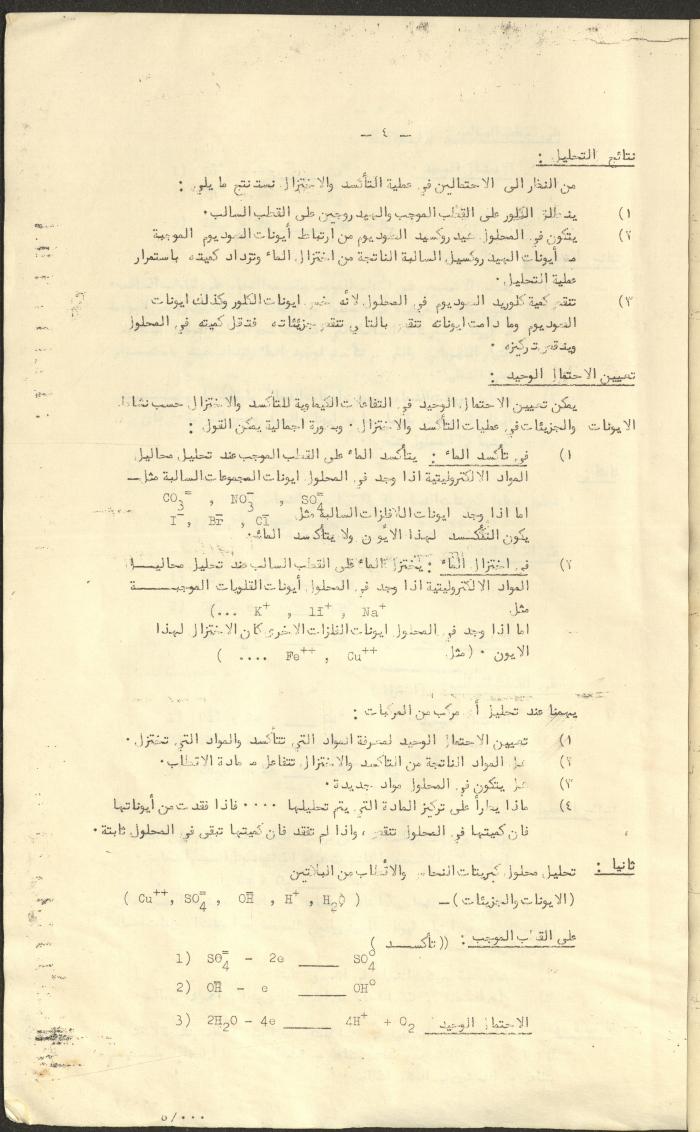 - ٤ -
نتائج التحليل :
من النظر الى الاحتمالين في عملية التأكسد والاختزال نستنتج ما يلي :
١) ينطلق الكلور على القطب الموجب والهيدروجين على القطب السالب ٠
٢) يتكون في المحلول هيدروكسيد الصوديوم من ارتباط أيونات الصوديوم الموجبة
مع أيونات الهيدروكسيل السالبة الناتجة من اختزال الماء وتزداد كميته باستمرار
عملية التحليل ٠
٣) تنقص كمية كلوريد الصوديوم في المحلول لأنه خسر ايونات الكلور وكذلك ايونات
الصوديوم وما دامت ايوناته تنقص بالتالي تنقص جزيئاته فتقل كميته في المحلول
وينقص تركيزه ٠
تعيين الاحتمال الوحيد :
يمكن تعيين الاحتمال الوحيد في التفاعلات الكيماوية للتأكسد والاختزال حسب نشاط
الايونات والجزيئات في عمليات التأكسد والاختزال ٠ وبصورة اجمالية يمكن القول :
١) في تأكسد الماء : يتأكسد الماء على القطب الموجب عند تحليل محاليل
المواد الالكتروليتية اذا وجد في المحلول ايونات المجموعات السالبة مثل —
CO₃⁼ , NO₃⁻ , SO₄⁼
اما اذا وجد ايونات اللافلزات السالبة مثل I⁻, Br⁻ , Cl⁻
يكون التأكسد لهذا الايون ولا يتأكسد الماء ٠
٢) في اختزال الماء : يختزل الماء على القطب السالب عند تحليل محاليل
المواد الالكتروليتية اذا وجد في المحلول أيونات القلويات الموجبة
مثل (... K⁺ , H⁺ , Na⁺
اما اذا وجد في المحلول ايونات الفلزات الاخرى كان الاختزال لهذا
الايون ٠ (مثل ( .... Fe⁺⁺ , Cu⁺⁺
يهمنا عند تحليل أي مركب من المركبات :
١) تعيين الاحتمال الوحيد لمعرفة المواد التي تتأكسد والمواد التي تختزل ٠
٢) هل المواد الناتجة من التأكسد والاختزال تتفاعل مع مادة الاقطاب ٠
٣) هل يتكون في المحلول مواد جديدة ٠
٤) ماذا يطرأ على تركيز المادة التي يتم تحليلها ٠٠٠٠ فاذا فقدت من أيوناتها
فان كميتها في المحلول تنقص ، واذا لم تفقد فان كميتها تبقى في المحلول ثابتة ٠
ثانيا : تحليل محلول كبريتات النحاس والاقطاب من البلاتين
(الايونات والجزيئات) — ( Cu⁺⁺, SO₄⁼ , OH⁻ , H⁺ , H₂O )
على القطب الموجب : (( تأكسد )
1) SO₄⁼ - 2e ____ SO₄⁰
2) OH⁻ - e ____ OH⁰
3) 2H₂O - 4e ____ 4H⁺ + O₂ الاحتمال الوحيد
٥/٠٠٠